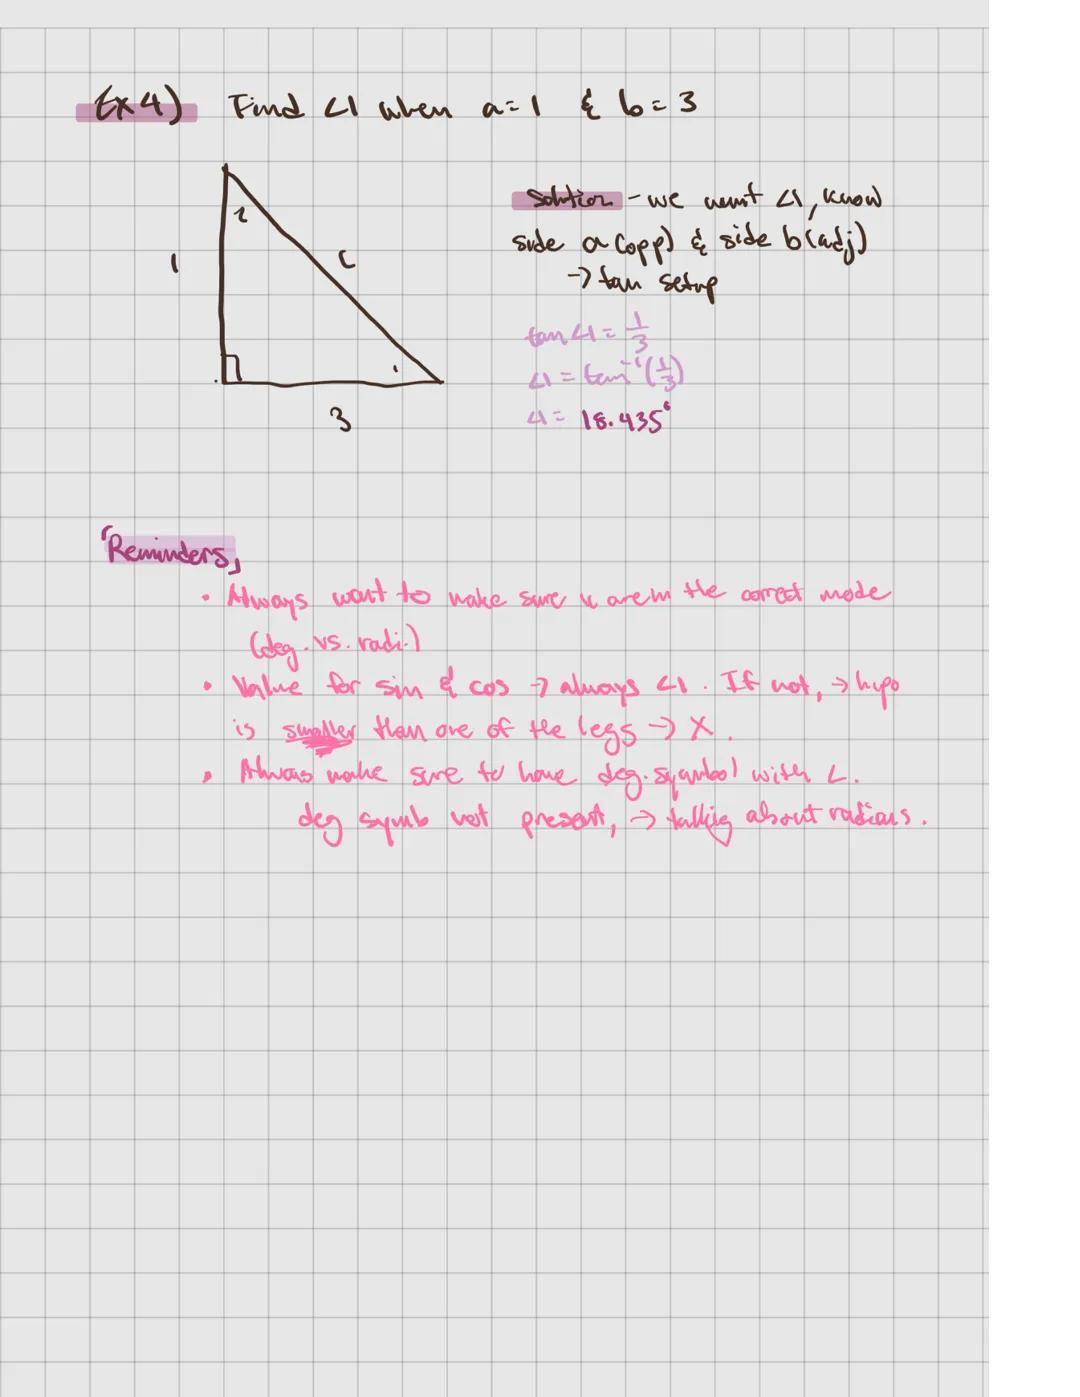 Ex 4) Find ∠1 when a=1 & b=3
2
1
c
1
3
Solution - we want ∠1, know
side a (opp) & side b (adj)
→ tan setup
tan ∠1 = 1/3
∠1 = tan⁻¹(1/3)
∠1 = 18.435°
「Reminders」
• Always want to make sure u are in the correct mode
(deg. vs. radi.)
• Value for sin & cos → always ∠1. If not, → hypo
is smaller than one of the legs → X.
• Always make sure to have deg. symbol with ∠.
deg symb not present, → talking about radians.